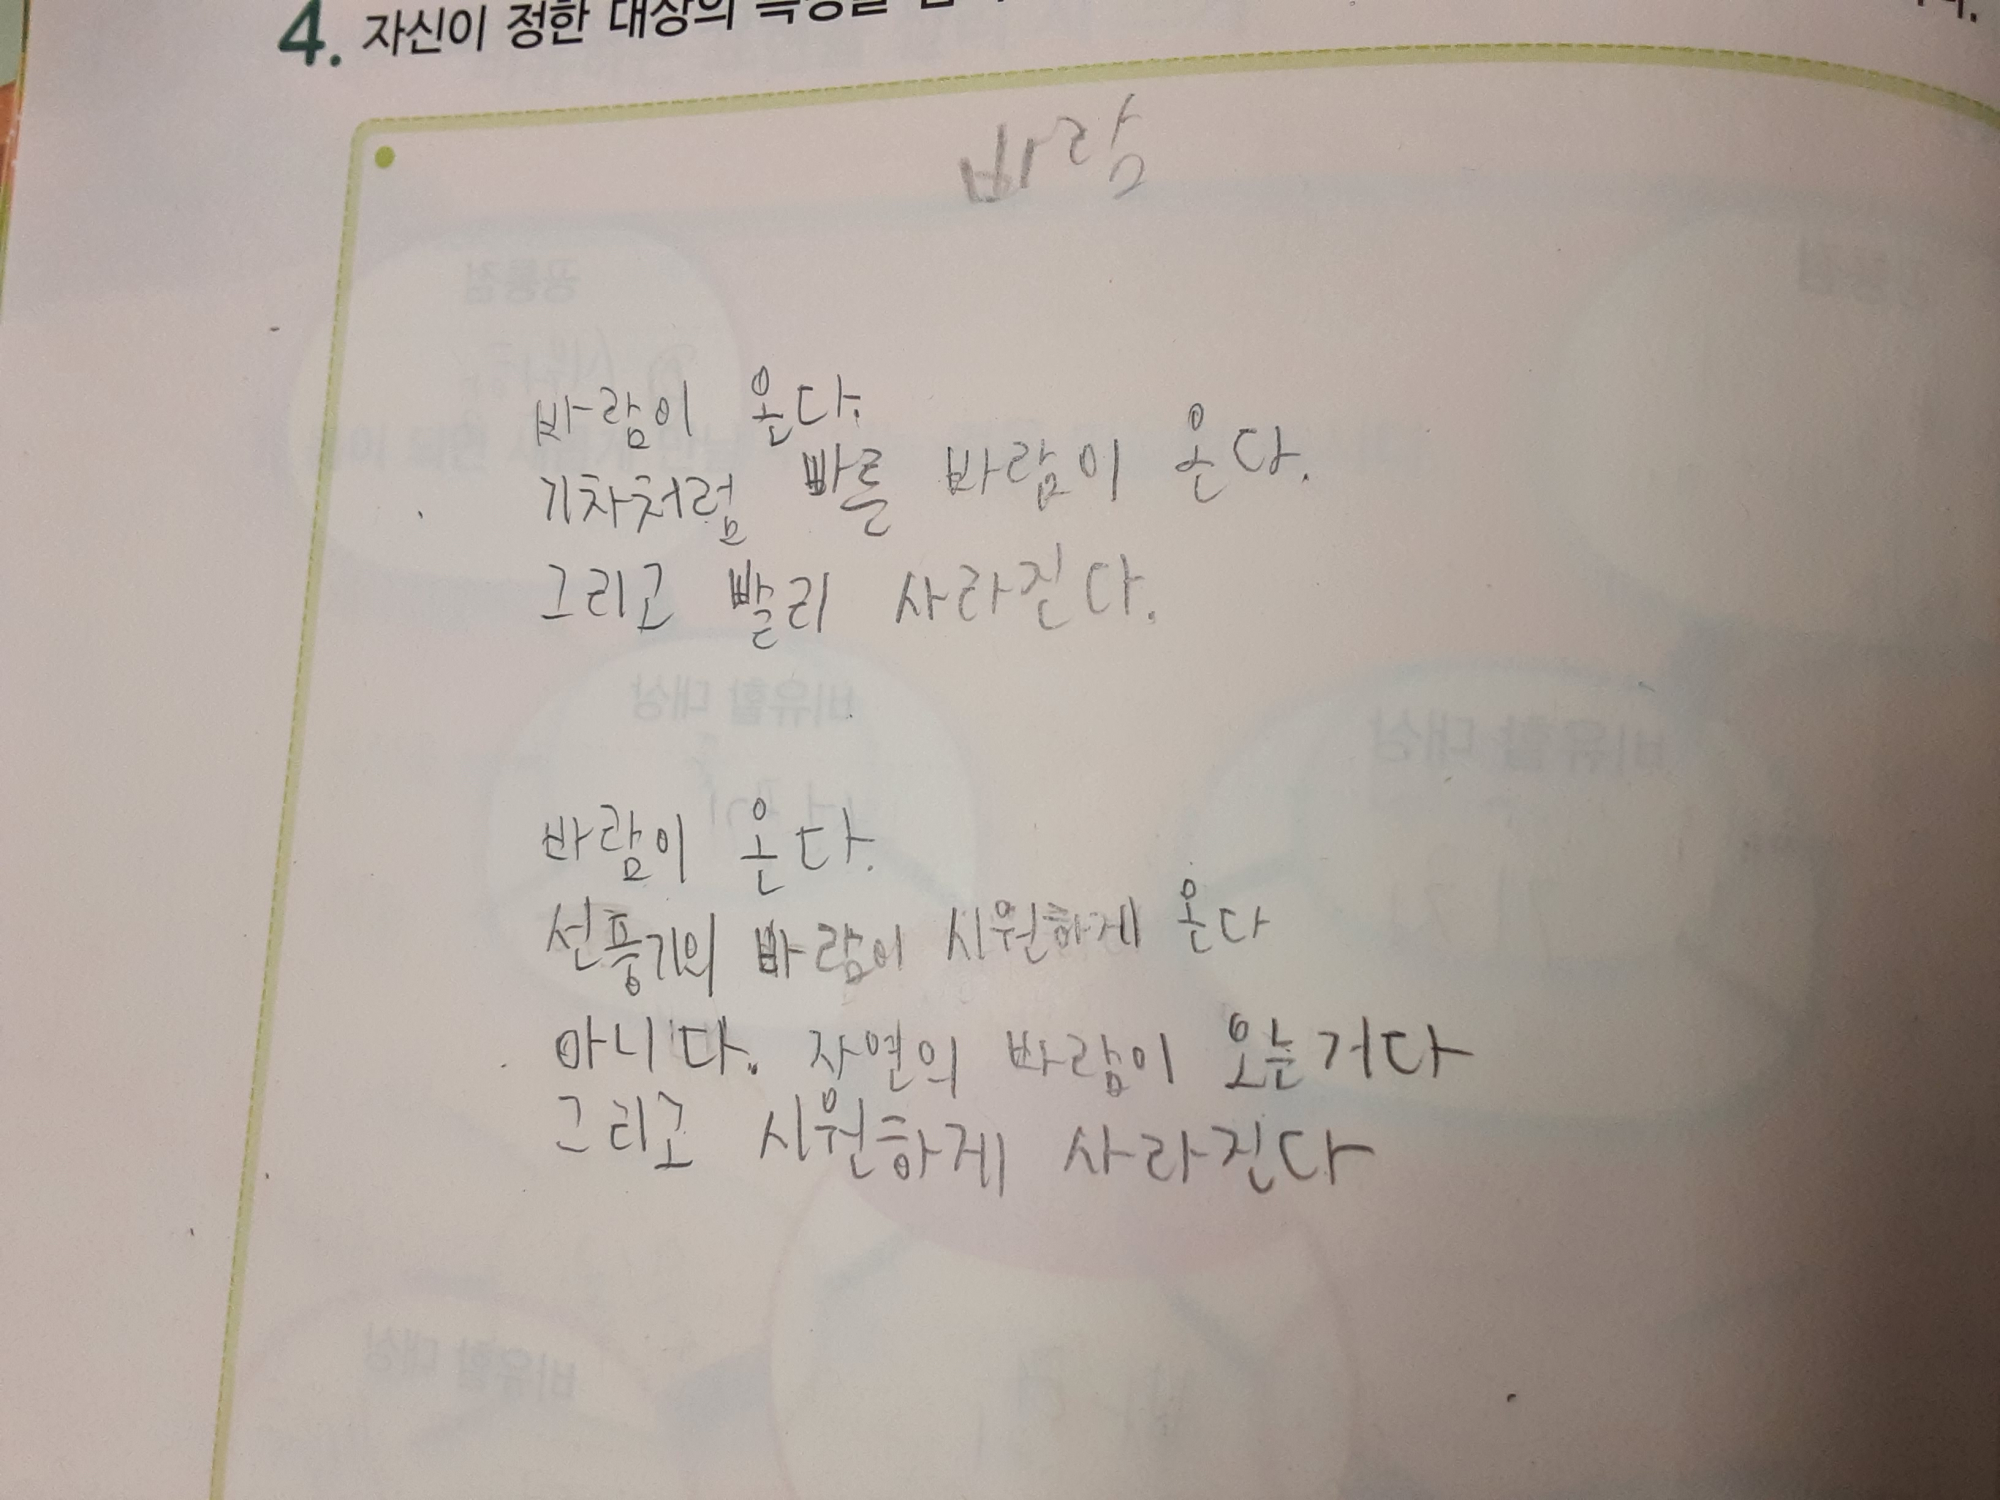 4. 자신이 정한 대상의
바람
바람이 온다.
기차처럼 빠른 바람이 온다.
그리고 빨리 사라진다.
바람이 온다.
선풍기의 바람이 시원하게 온다
아니다. 자연의 바람이 오는거다
그리고 시원하게 사라진다
공통점
비유할 대상
비유할 대상
비유할 대상